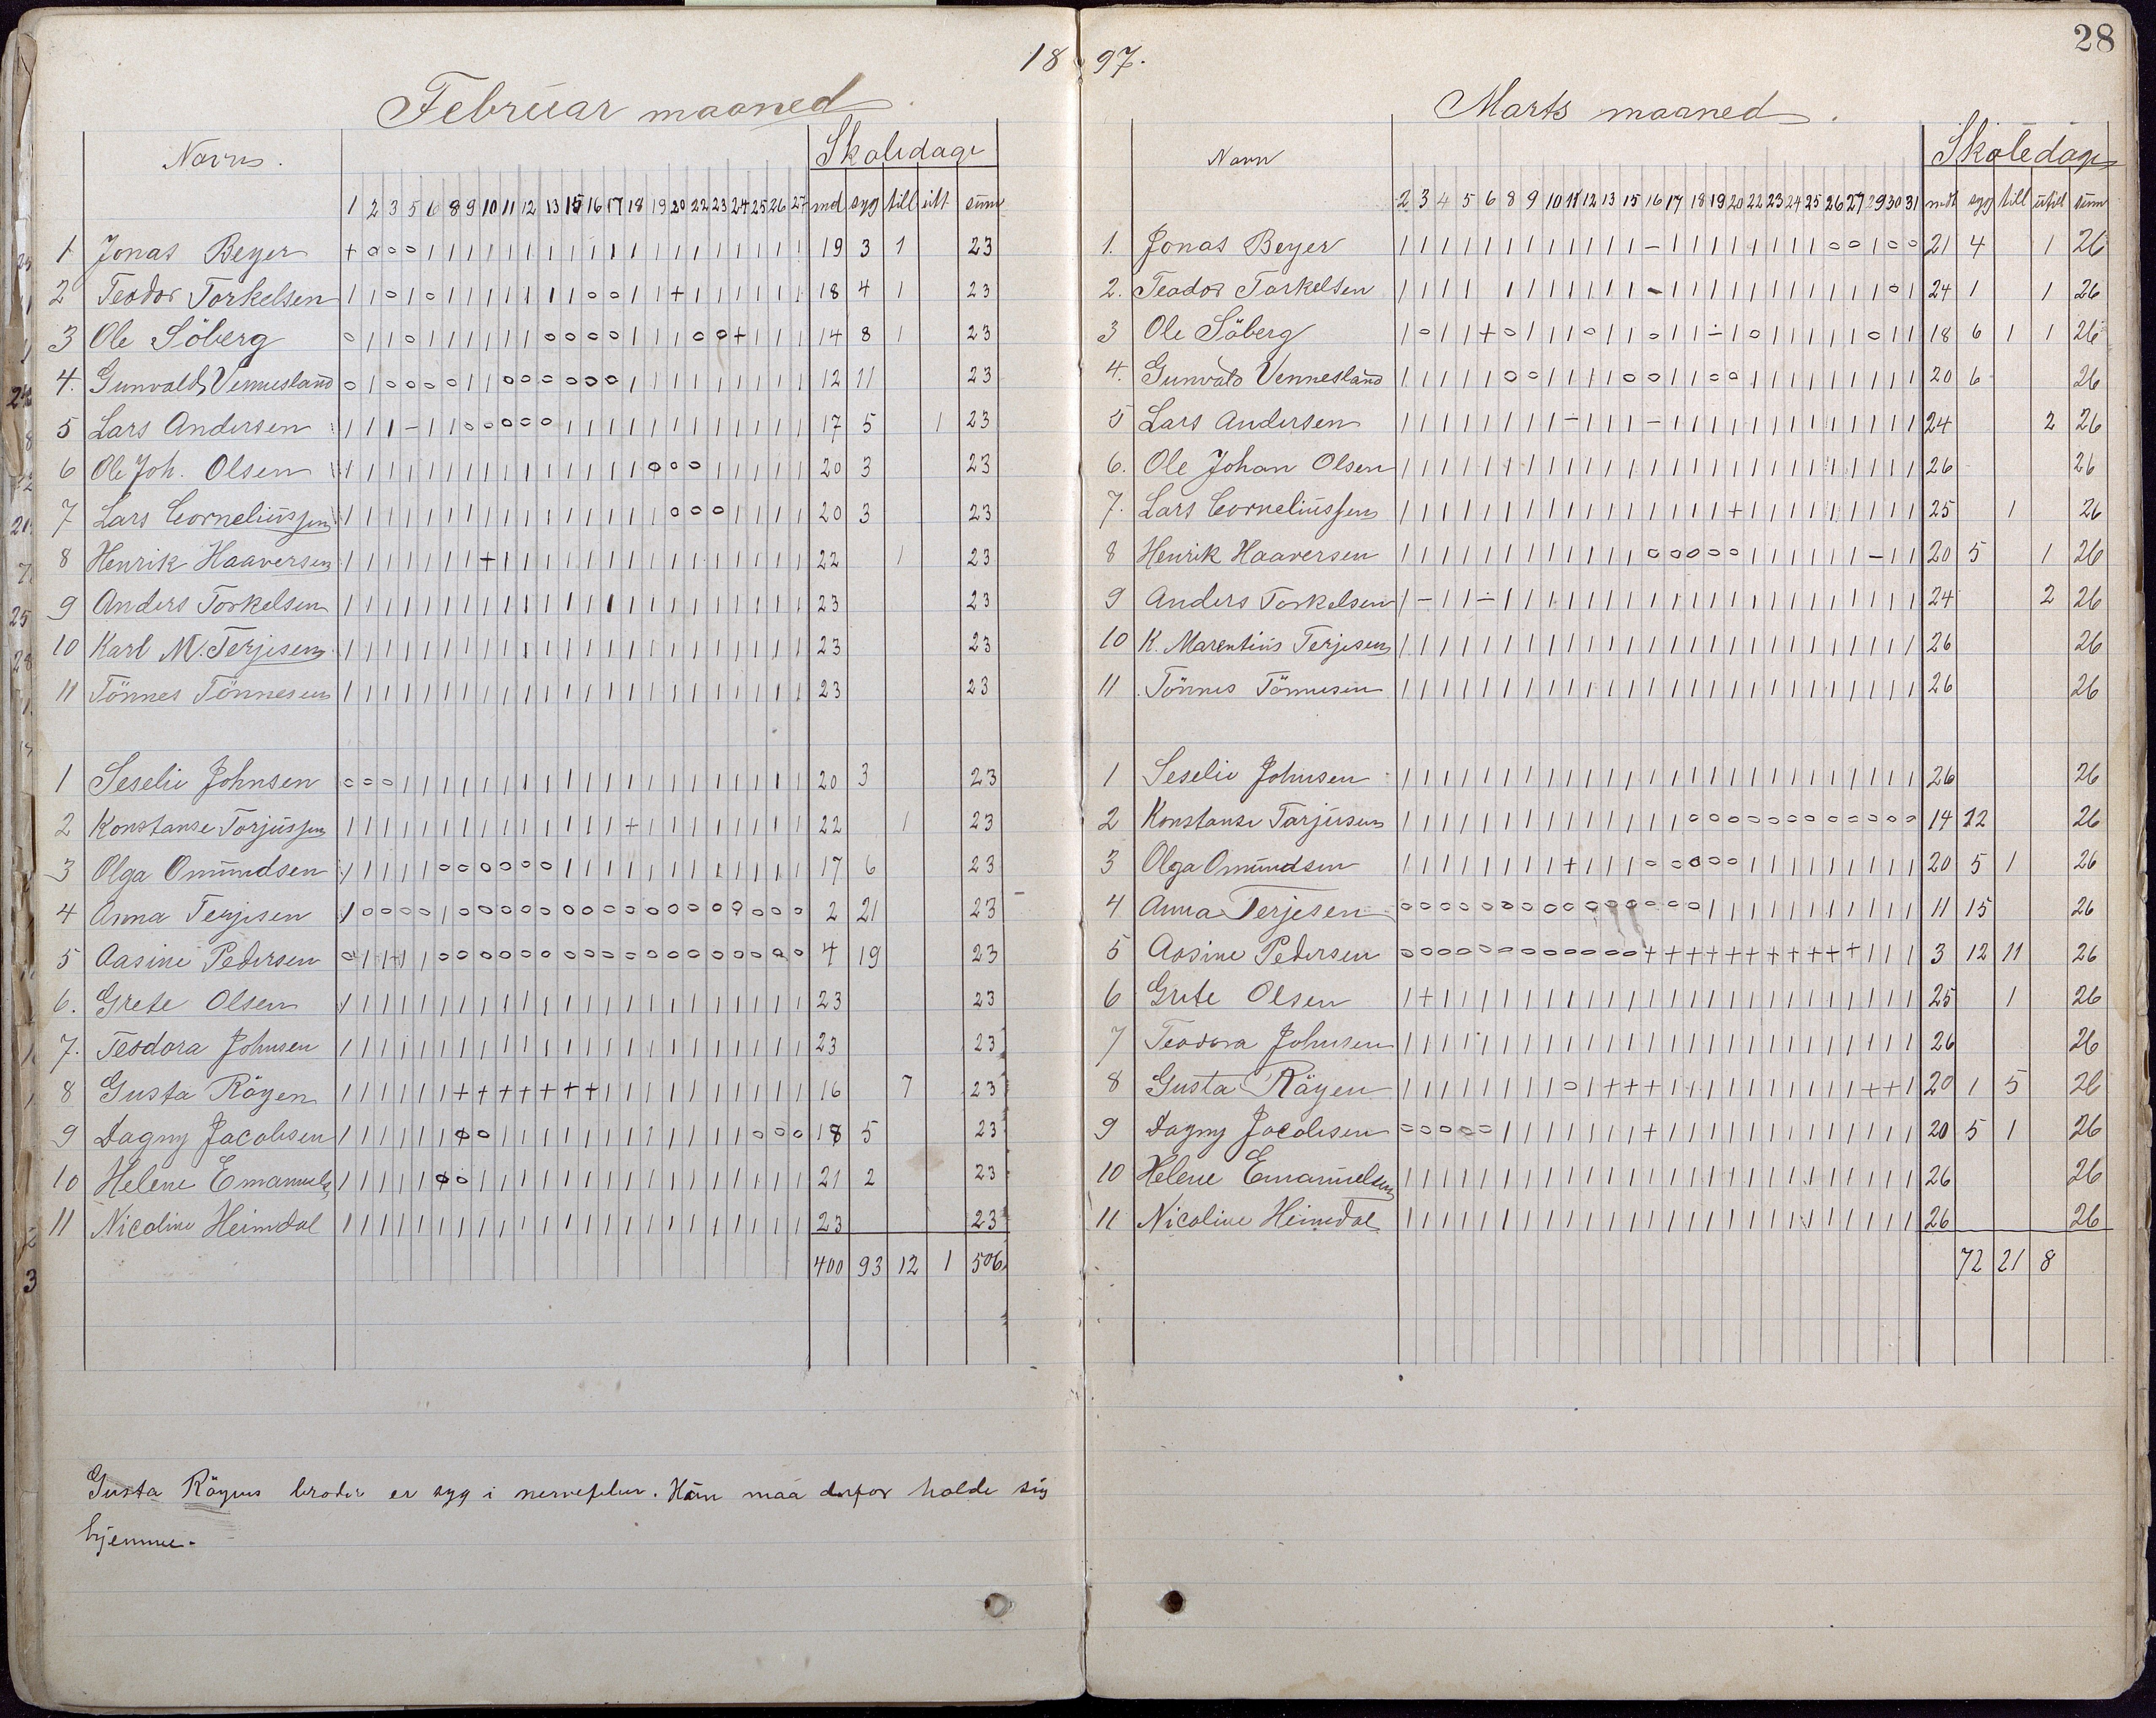 28
18 97.
Februar maaned.
Navn. Skoledage
1 2 3 5 6 8 9 10 11 12 13 15 16 17 18 19 20 22 23 24 25 26 27 md syg till utt sum
1 Jonas Beyer + o o o | | | | | | | | | | | | | | | | | | | 19 3 1 23
2 Teodor Torkelsen | | o | o | | | | | | | o o | | + | | | | | | 18 4 1 23
3 Ole Söberg o | | o | | | | | | o o o o | | | o o + | | | 14 8 1 23
4. Gunvald Vennesland o | o o o o | | o o o o o o | | | | | | | | | 12 11 23
5 Lars Andersen | | | - | | o o o o o | | | | | | | | | | | | 17 5 1 23
6 Ole Joh. Olsen | | | | | | | | | | | | | | | o o o | | | | | 20 3 23
7 Lars Corneliussen | | | | | | | | | | | | | | | | o o o | | | | 20 3 23
8 Henrik Haaversen | | | | | | | + | | | | | | | | | | | | | | | 22 1 23
9 Anders Torkelsen | | | | | | | | | | | | | | | | | | | | | | | 23 23
10 Karl M. Terjesen | | | | | | | | | | | | | | | | | | | | | | | 23 23
11 Tönnes Tönnesen | | | | | | | | | | | | | | | | | | | | | | | 23 23
1 Seselie Johnsen o o o | | | | | | | | | | | | | | | | | | | | 20 3 23
2 Konstanse Torjussen | | | | | | | | | | | | | | + | | | | | | | | 22 1 23
3 Olga Omundsen | | | | | o o o o o o | | | | | | | | | | | | 17 6 23
4 Anna Terjesen | o o o o | o o o o o o o o o o o o o o o o o 2 21 23
5 Aasine Pedersen o | | | | o o o o o o o o o o o o o o o o o o 4 19 23
6. Grete Olsen | | | | | | | | | | | | | | | | | | | | | | | 23 23
7. Teodora Johnsen | | | | | | | | | | | | | | | | | | | | | | | 23 23
8 Gusta Röyen | | | | | | + + + + + + + | | | | | | | | | | 16 7 23
9 Dagny Jacobsen | | | | | | o o | | | | | | | | | | | | o o o 18 5 23
10 Helene Emanuels | | | | | o o | | | | | | | | | | | | | | | | 21 2 23
11 Nicoline Heimdal | | | | | | | | | | | | | | | | | | | | | | | 23 23
400 93 12 1 506
Gusta Röyens broder er syg i nervefeber. Hun maa derfor holde sig
hjemme.
Marts maaned.
Navn Skoledage
2 3 4 5 6 8 9 10 11 12 13 15 16 17 18 19 20 22 23 24 25 26 27 29 30 31 mdt syg till utill sum
1. Jonas Beyer | | | | | | | | | | | | - | | | | | | | | o o | o o 21 4 1 26
2. Teodor Torkelsen | | | | | | | | | | | | - | | | | | | | | | | | o | 24 1 1 26
3 Ole Söberg | o | | + o | | | o | | o | | ÷ | o | | | | | o | | 18 6 1 1 26
4. Gunvald Vennesland | | | | | o o | | | | o o | | o o | | | | | | | | | 20 6 26
5 Lars Andersen | | | | | | | | - | | | - | | | | | | | | | | | | | 24 2 26
6. Ole Johan Olsen | | | | | | | | | | | | | | | | | | | | | | | | | | 26 26
7. Lars Corneliussen | | | | | | | | | | | | | | | | + | | | | | | | | | 25 1 26
8 Henrik Haaversen | | | | | | | | | | | | o o o o o | | | | | | - | | 20 5 1 26
9 Anders Torkelsen | - | | - | | | | | | | | | | | | | | | | | | | | | 24 2 26
10 K. Marentius Terjesen | | | | | | | | | | | | | | | | | | | | | | | | | | 26 26
11 Tönnes Tönnesen | | | | | | | | | | | | | | | | | | | | | | | | | | 26 26
1 Seselie Johnsen | | | | | | | | | | | | | | | | | | | | | | | | | | 26 26
2 Konstanse Tarjusen | | | | | | | | | | | | | | o o o o o o o o o o o o 14 12 26
3 Olga Omundsen | | | | | | | | + | | | o o o o o | | | | | | | | | 20 5 1 26
4 Anna Terjesen o o o o o o o o o o o o o o o | | | | | | | | | | | 11 15 26
5 Aasine Pedersen o o o o o o o o o o o o + + + + + + + + + + + | | | 3 12 11 26
6 Grete Olsen | + | | | | | | | | | | | | | | | | | | | | | | | | 25 1 26
7 Teodora Johnsen | | | | | | | | | | | | | | | | | | | | | | | | | | 26 26
8 Gusta Räyen | | | | | | | | o | + + + | | | | | | | | | | + + | 20 1 5 26
9 Dagny Jacobsen o o o o o | | | | | | | + | | | | | | | | | | | | | 20 5 1 26
10 Helene Emanuelsen | | | | | | | | | | | | | | | | | | | | | | | | | | 26 26
11 Nicoline Heimdal | | | | | | | | | | | | | | | | | | | | | | | | | | 26 26
72 21 8